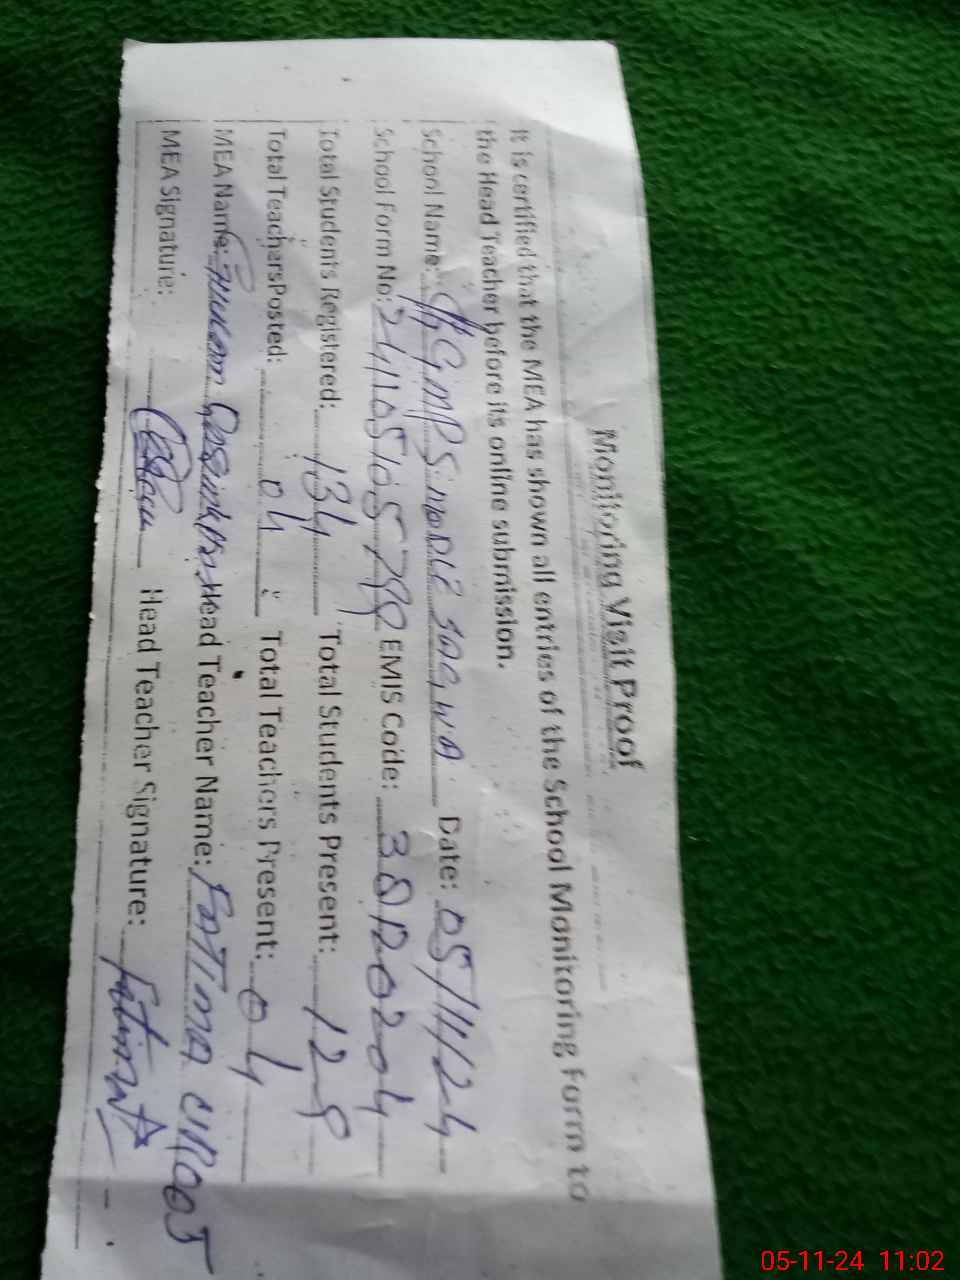 Monitoring Visit Proof
It is certified that the MEA has shown all entries of the School Monitoring Form to
the Head Teacher before its online submission.
School Name: GGMPS Date: 05/11/24
School Form No: EMIS Code:
Total Students Registered: 134 Total Students Present: 129
Total Teachers Posted: 04 Total Teachers Present: 04
MEA Name: Ghulam Head Teacher Name: FATIMA
MEA Signature: Head Teacher Signature: Fatima
05-11-24 11:02